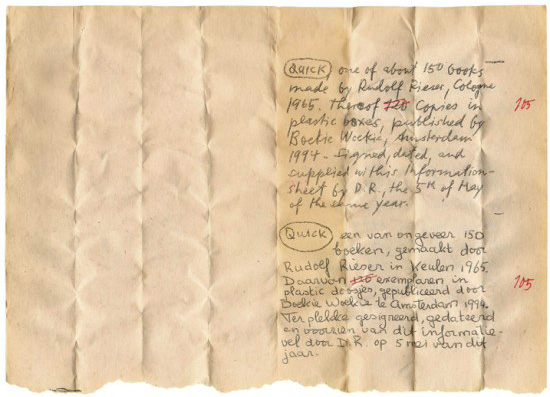 Quick, one of about 150 books
made by Rudolf Rieser, Cologne
1965. Thereof 120 Copies in 105
plastic boxes, published by
Boekie Woekie, Amsterdam
1994 - signed, dated, and
supplied with this Information-
sheet by D.R., the 5th of May
of the same year.
Quick een van ongeveer 150
boeken, gemaakt door
Rudolf Rieser in Keulen 1965.
Daarvan 120 exemplaren in 105
plastic doosjes, gepubliceerd door
Boekie Woekie te Amsterdam 1994.
Ter plekke gesigneerd, gedateerd
en voorzien van dit informatie-
vel door D.R. op 5 mei van dit
jaar.